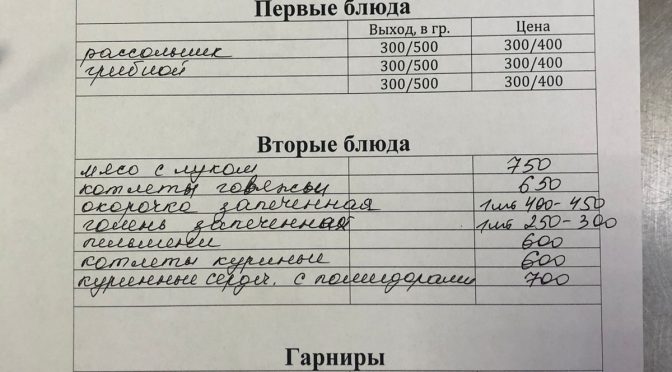 Первые блюда
Выход, в гр. Цена
рассольник 300/500 300/400
грибной 300/500 300/400
300/500 300/400
Вторые блюда
мясо с луком 750
котлеты говяжьи 650
окорочка запеченная 1шт 400-450
голень запеченная 1шт 250-300
пельмени 600
котлеты куриные 600
куринные сердеч. с помидорами 700
Гарниры